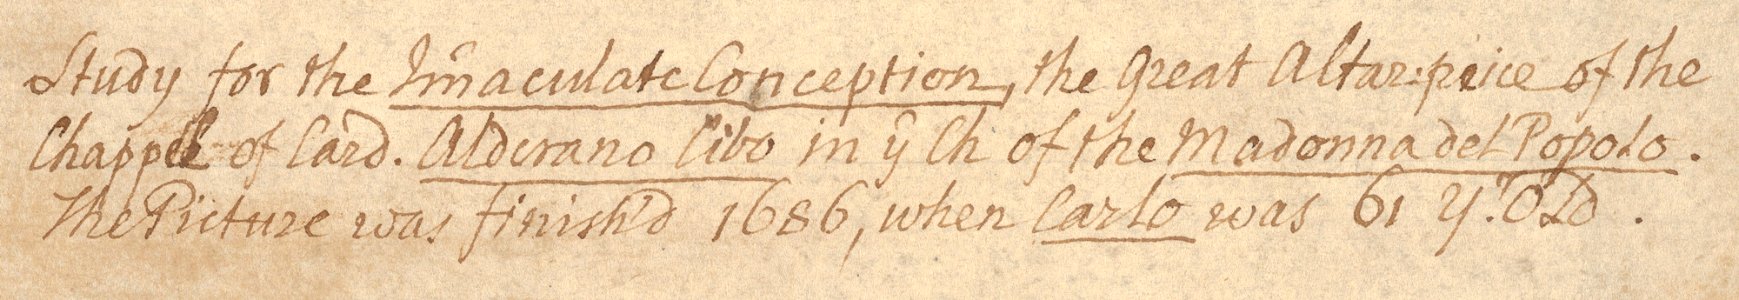 Study for the Im̄aculate Conception, the Great Altar:peice of the
Chappel of Card. Alderano Cibo in ỹ Ch of the Madonna del Popolo.
The Picture was finish'd 1686, when Carlo was 61 Y.ʳ Old.